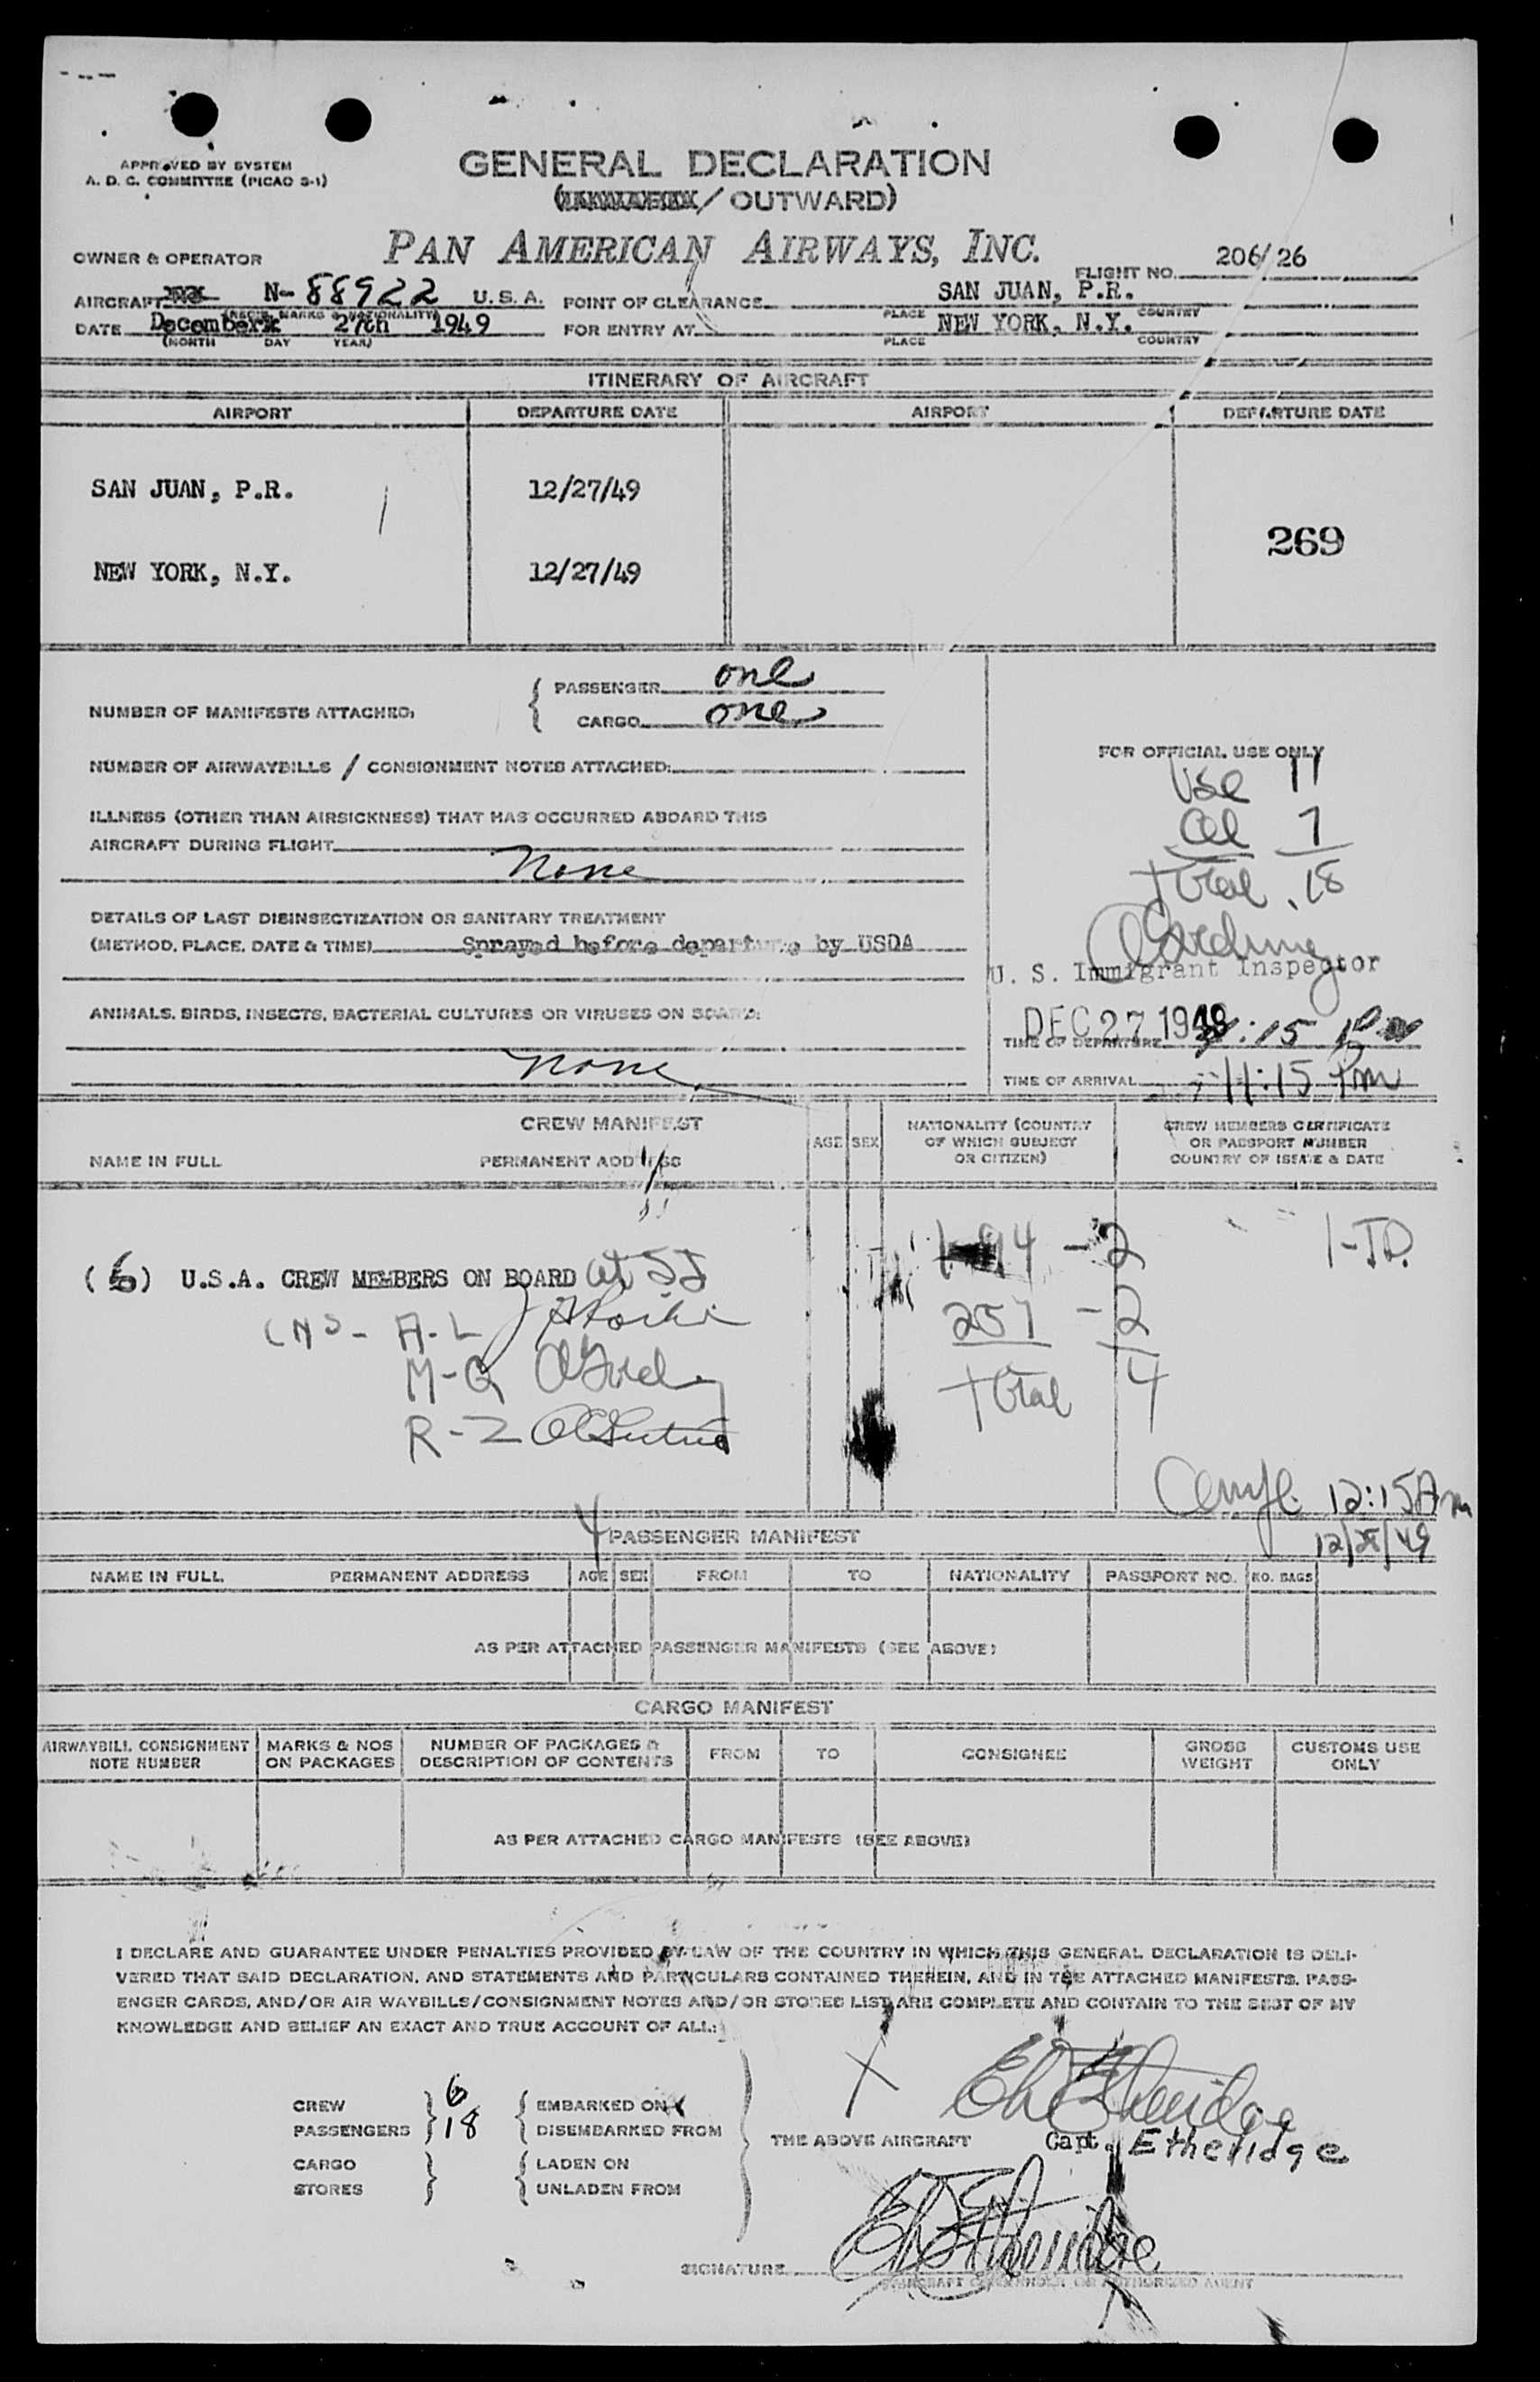 APPROVED BY SYSTEM
A. D. C. COMMITTEE (PICAO S-1)
GENERAL DECLARATION
(INWARD / OUTWARD)
OWNER & OPERATOR PAN AMERICAN AIRWAYS, INC.
FLIGHT NO. 206/26
AIRCRAFT N-88922 U. S. A. POINT OF CLEARANCE SAN JUAN, P.R.
(REG'N. MARKS & NATIONALITY) PLACE COUNTRY
DATE December 27th 1949 FOR ENTRY AT NEW YORK, N.Y.
(MONTH DAY YEAR) PLACE COUNTRY
ITINERARY OF AIRCRAFT
AIRPORT DEPARTURE DATE AIRPORT DEPARTURE DATE
SAN JUAN, P.R. 12/27/49
269
NEW YORK, N.Y. 12/27/49
NUMBER OF MANIFESTS ATTACHED: PASSENGER one
CARGO one
NUMBER OF AIRWAYBILLS / CONSIGNMENT NOTES ATTACHED:
ILLNESS (OTHER THAN AIRSICKNESS) THAT HAS OCCURRED ABOARD THIS
AIRCRAFT DURING FLIGHT
None
DETAILS OF LAST DISINSECTIZATION OR SANITARY TREATMENT
(METHOD, PLACE, DATE & TIME) Sprayed before departure by USDA
ANIMALS, BIRDS, INSECTS, BACTERIAL CULTURES OR VIRUSES ON BOARD:
None
FOR OFFICIAL USE ONLY
Usc 11
al 7
Total 18
U. S. Immigrant Inspector
DEC 27 1949
TIME OF DEPARTURE :15 P
TIME OF ARRIVAL 11:15 Pm
CREW MANIFEST
NAME IN FULL PERMANENT ADDRESS AGE SEX NATIONALITY (COUNTRY OF WHICH SUBJECT OR CITIZEN) CREW MEMBERS CERTIFICATE OR PASSPORT NUMBER COUNTRY OF ISSUE & DATE
(6) U.S.A. CREW MEMBERS ON BOARD at SJ
A-L
M-Q
R-Z
94 - 2
257 - 2
Total 4
1-TD.
12:15 Am
12/28/49
4
PASSENGER MANIFEST
NAME IN FULL PERMANENT ADDRESS AGE SEX FROM TO NATIONALITY PASSPORT NO. NO. BAGS
AS PER ATTACHED PASSENGER MANIFESTS (SEE ABOVE)
CARGO MANIFEST
AIRWAYBILL CONSIGNMENT NOTE NUMBER MARKS & NOS ON PACKAGES NUMBER OF PACKAGES & DESCRIPTION OF CONTENTS FROM TO CONSIGNEE GROSS WEIGHT CUSTOMS USE ONLY
AS PER ATTACHED CARGO MANIFESTS (SEE ABOVE)
I DECLARE AND GUARANTEE UNDER PENALTIES PROVIDED BY LAW OF THE COUNTRY IN WHICH THIS GENERAL DECLARATION IS DELI-
VERED THAT SAID DECLARATION, AND STATEMENTS AND PARTICULARS CONTAINED THEREIN, AND IN THE ATTACHED MANIFESTS, PASS-
ENGER CARDS, AND/OR AIR WAYBILLS/CONSIGNMENT NOTES AND/OR STORES LIST ARE COMPLETE AND CONTAIN TO THE BEST OF MY
KNOWLEDGE AND BELIEF AN EXACT AND TRUE ACCOUNT OF ALL:
CREW 6 EMBARKED ON
PASSENGERS 18 DISEMBARKED FROM
THE ABOVE AIRCRAFT Capt. Etheridge
CARGO LADEN ON
STORES UNLADEN FROM
SIGNATURE
AIRCRAFT COMMANDER OR AUTHORIZED AGENT